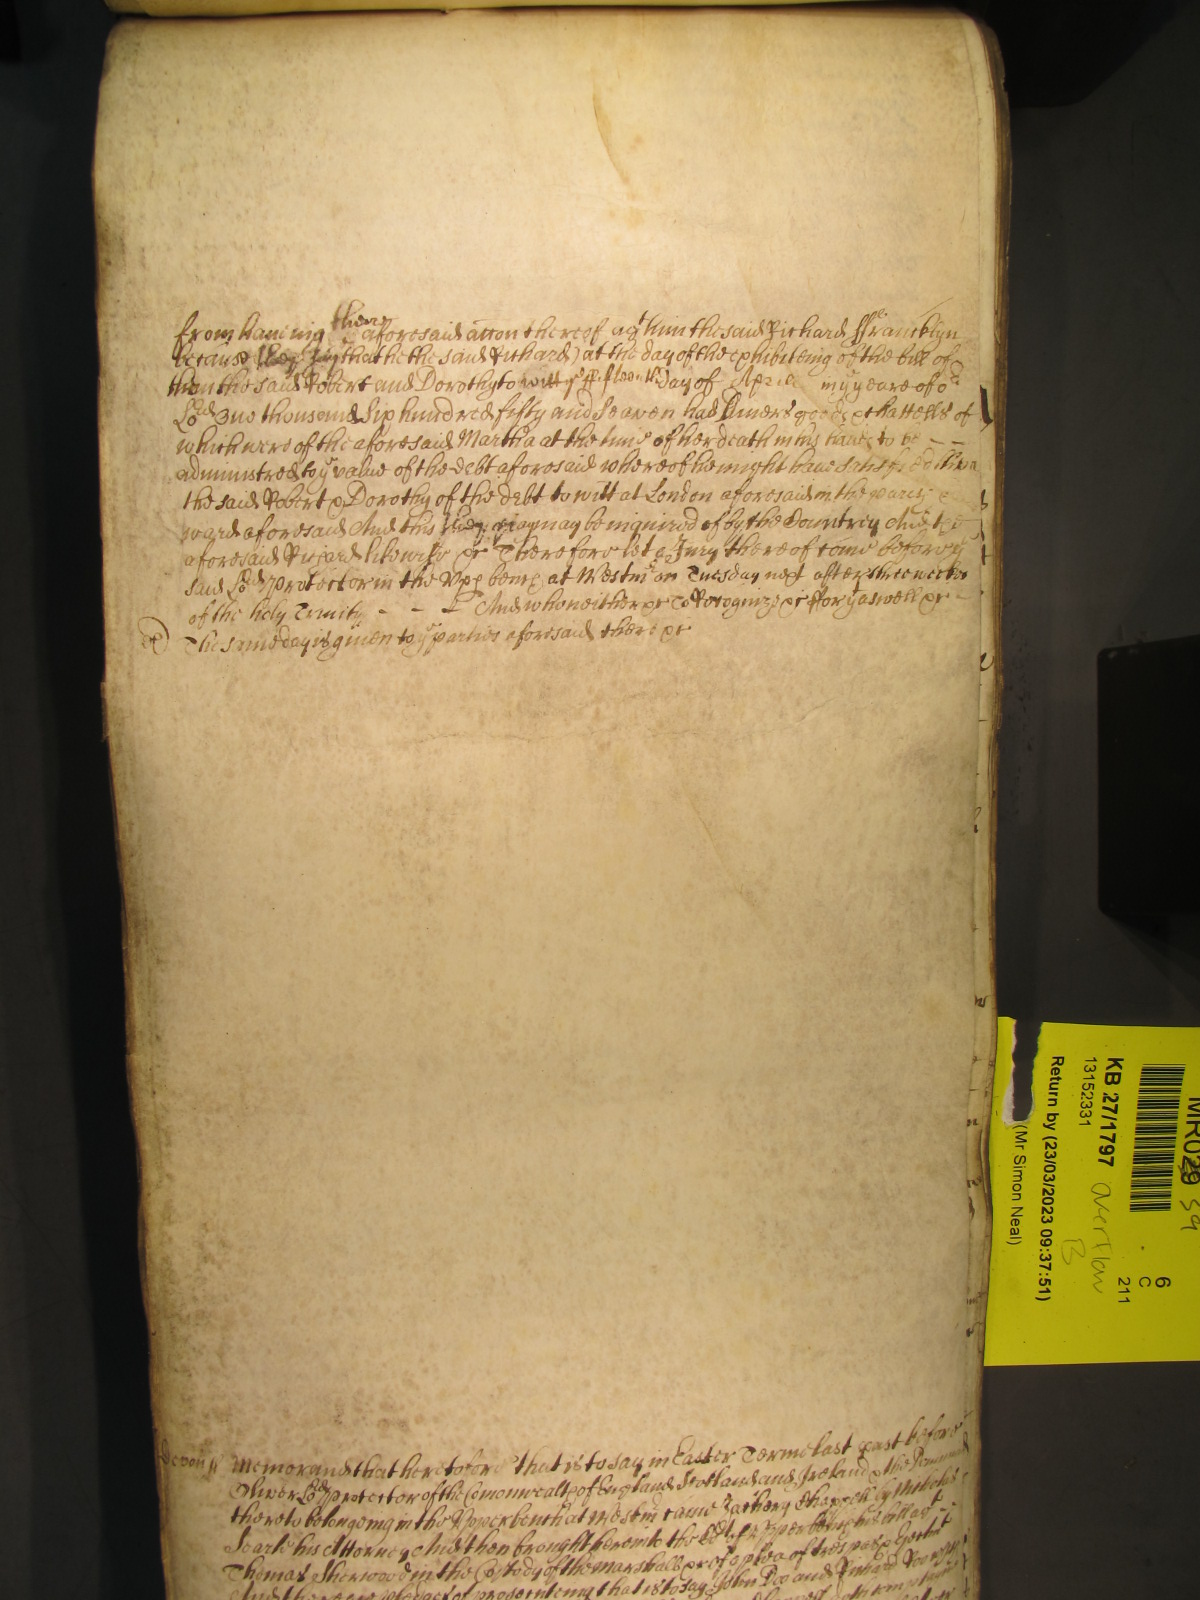 from haueing their aforesaid accon thereof agt him the said Richard Francklyn
because they say that he the said Richard at the day of the exhibiteing of the bill of
them the said Robert and Dorothy to witt ye fifteenth day of Aprill in ye yeare of or
Lord One thousand Six hundred fifty and Seaven had diuers goods & chattells of
which were of the aforesaid Martha at the time of her death in his hands to be - -
administred to ye value of the debt aforesaid whereof he might haue satisfied
the said Robert & Dorothy of the debt to witt at London aforesaid in the parish &
ward aforesaid And this they pray may be inquired of by the Country And the
aforesaid Richard likewise &c Therefore let a Jury thereof come before ye
said Lord Protector in the Upp bench at Westmr on Tuesday next after three weekes
of the holy Trinity - - - And who neither &c To Recognize &c For yt aswell &c -
The same day is giuen to ye parties aforesaid there &c
Devon ss Memorand that heretofore that is to say in Easter Terme last past before
Oliver Lord Protector of the Comonwealth of England Scotland and Ireland & the
thereto belongeing in the Upper bench at Westmr came Zachery Chappell by Nicholas
Searle his Attorney And then brought here into the Court of Upper bench his bill agt
Thomas Sherwood in the Custody of the marshall &c of a plea of trespas &
And there are pledges of prosecuteing that is to say John Doo and Richard Roo
MR029 39
KB 27/1797 Overflow B
13152331
6
C
211
Return by (23/03/2023 09:37:51)
(Mr Simon Neal)